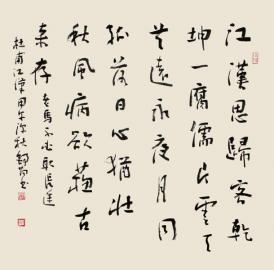 江漢思歸客乾
坤一腐儒片雲天
共遠永夜月同
孤落日心猶壯
秋風病欲蘇古
来存老馬不必取長途
杜甫江漢甲午深秋书